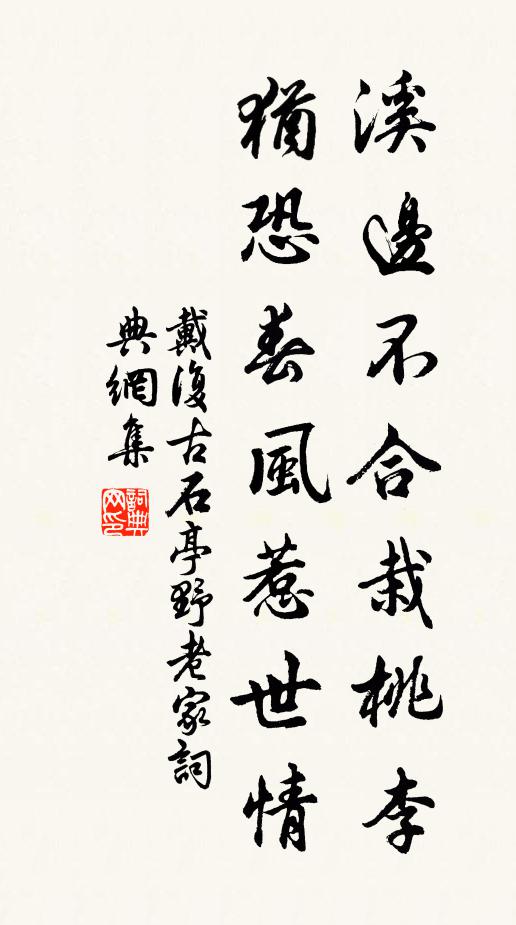 溪邊不合栽桃李
猶恐春風惹世情
戴復古石亭野老家詞
典網集
詞典
网印